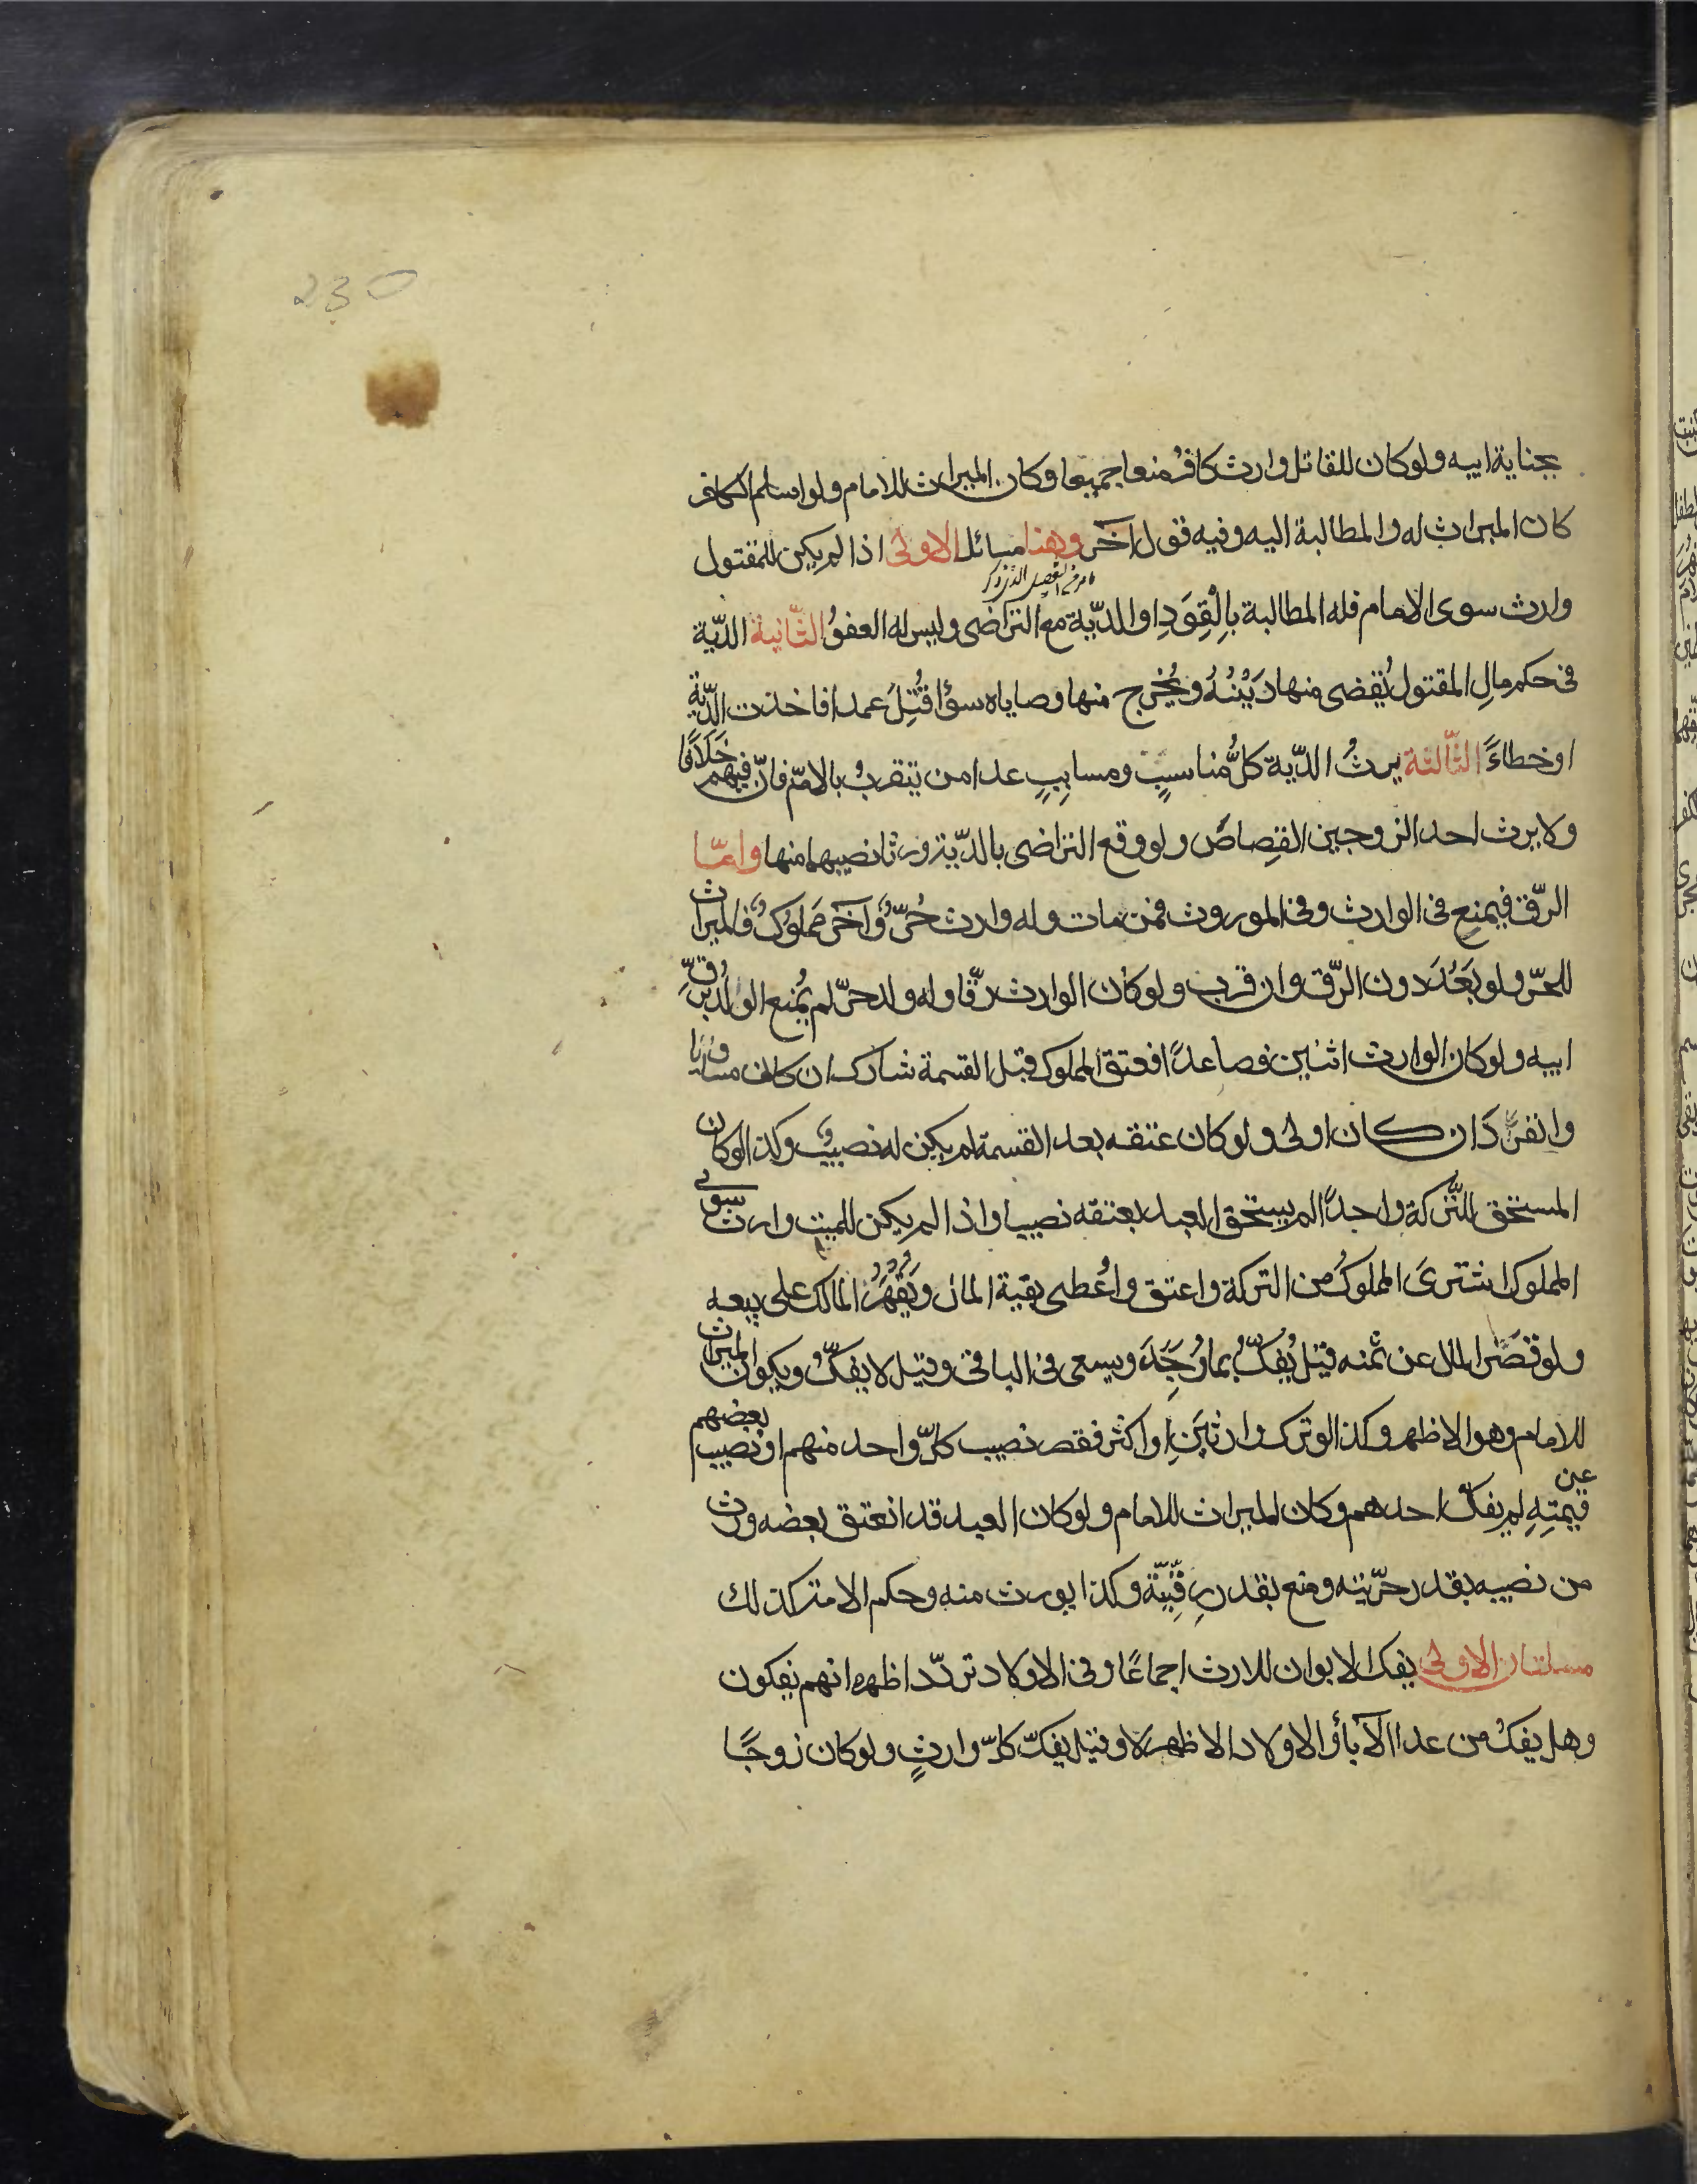 230
بجناية ابيه ولو كان للقاتل وارث كافرٌ منعا جميعا وكان الميراث للامام ولو اسلم الكافر
كان الميراث له والمطالبة اليه وفيه قول آخر وهنا مسائل الاولى اذا لم يكن للمقتول
وارث سوى الامام فله المطالبة بالْقِوَدِ او الديّة مع التراضى وليس له العفوُ الثّانية الديّة
فى حكم مالِ المقتول يُقضى منها دَيْنُهُ ويُخْرج منها وصاياه سؤا قُتِلَ عمدا فاخذت الديّة
او خطاءً الثّالثة يرثُ الديّة كلُّ مناسبٍ ومسابِبٍ عدا من يتقربُ بالامّ فانّ فيهم خلافًا
ولا يرث احد الزوجين القِصاصَ ولو وقع التراضى بالديّة ورثا نصيبهما منها وامّا
الرّق فيمنع فى الوارث وفى الموروث فمن مات وله وارث حُرٌّ وآخر مملوكٌ فالميراث
للحرّ ولو بَعُدَ دون الرّق وان قرب ولو كان الوارث رقّا وله ولد حرّ لم يُمنع الولد برقِّ
ابيه ولو كان الوارث اثنين فصاعدًا فعتق المملوك قبل القسمة شارك ان كان مساويا
وانفرَدَ ان كان اولى ولو كان عتقه بعد القسمة لم يكن له نصيبٌ وكذا لو كان
المستحق للتّركة واحدًا لم يستحق العبد بعتقه نصيبا واذا لم يكن للميت وارث سوى
المملوك اشترىَ المملوكُ من التركة واعتق واُعْطى بقية المال ويُقْهَرُ المالك على بيعه
ولو قصَرَ المال عن ثمنه قيل يُفكُّ بما وُجِدَ ويسعى فى الباقى وقيل لا يفكّ ويكون الميراث
للامام وهو الاظهر وكذا لو ترك وارثَيَنِ او اكثر فقصر نصيب كلّ واحد منهم او نصيب بعضهم
عن قيمتِهِ لم يفكّ احدهم وكان الميراث للامام ولو كان العبد قد انعتق بعضه ورث
من نصيبه بقدر حرّيّته ومنع بقدر رِقّيّة وكذا يورث منه وحكم الامة كذلك
مسلتان الاولى يفك الابوان للارث اجماعًا وفى الاولاد تردّد اظهره انهم يفكون
وهل يفكُ من عدا الآبأ والاولاد الاظهر لا وقيل يفكّ كلّ وارثٍ ولو كان زوجًا